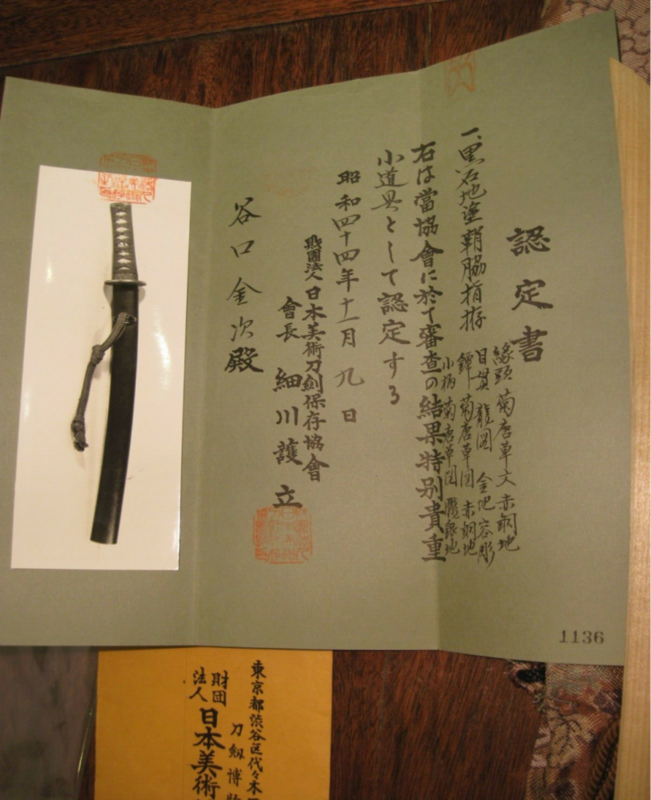 認定書
一、黒石地塗鞘脇指拵
縁頭 菊唐草文 赤銅地
目貫 龍図 金地容彫
鐔 菊唐草図 赤銅地
小柄 菊唐草図 朧銀地
右は當協會に於て審査の結果特別貴重
小道具として認定する
昭和四十四年十一月九日
財團法人日本美術刀劍保存協會
會長 細川護立
谷口金次殿
1136
東京都渋谷区代々木
刀剣博物
財団
法人
日本美術